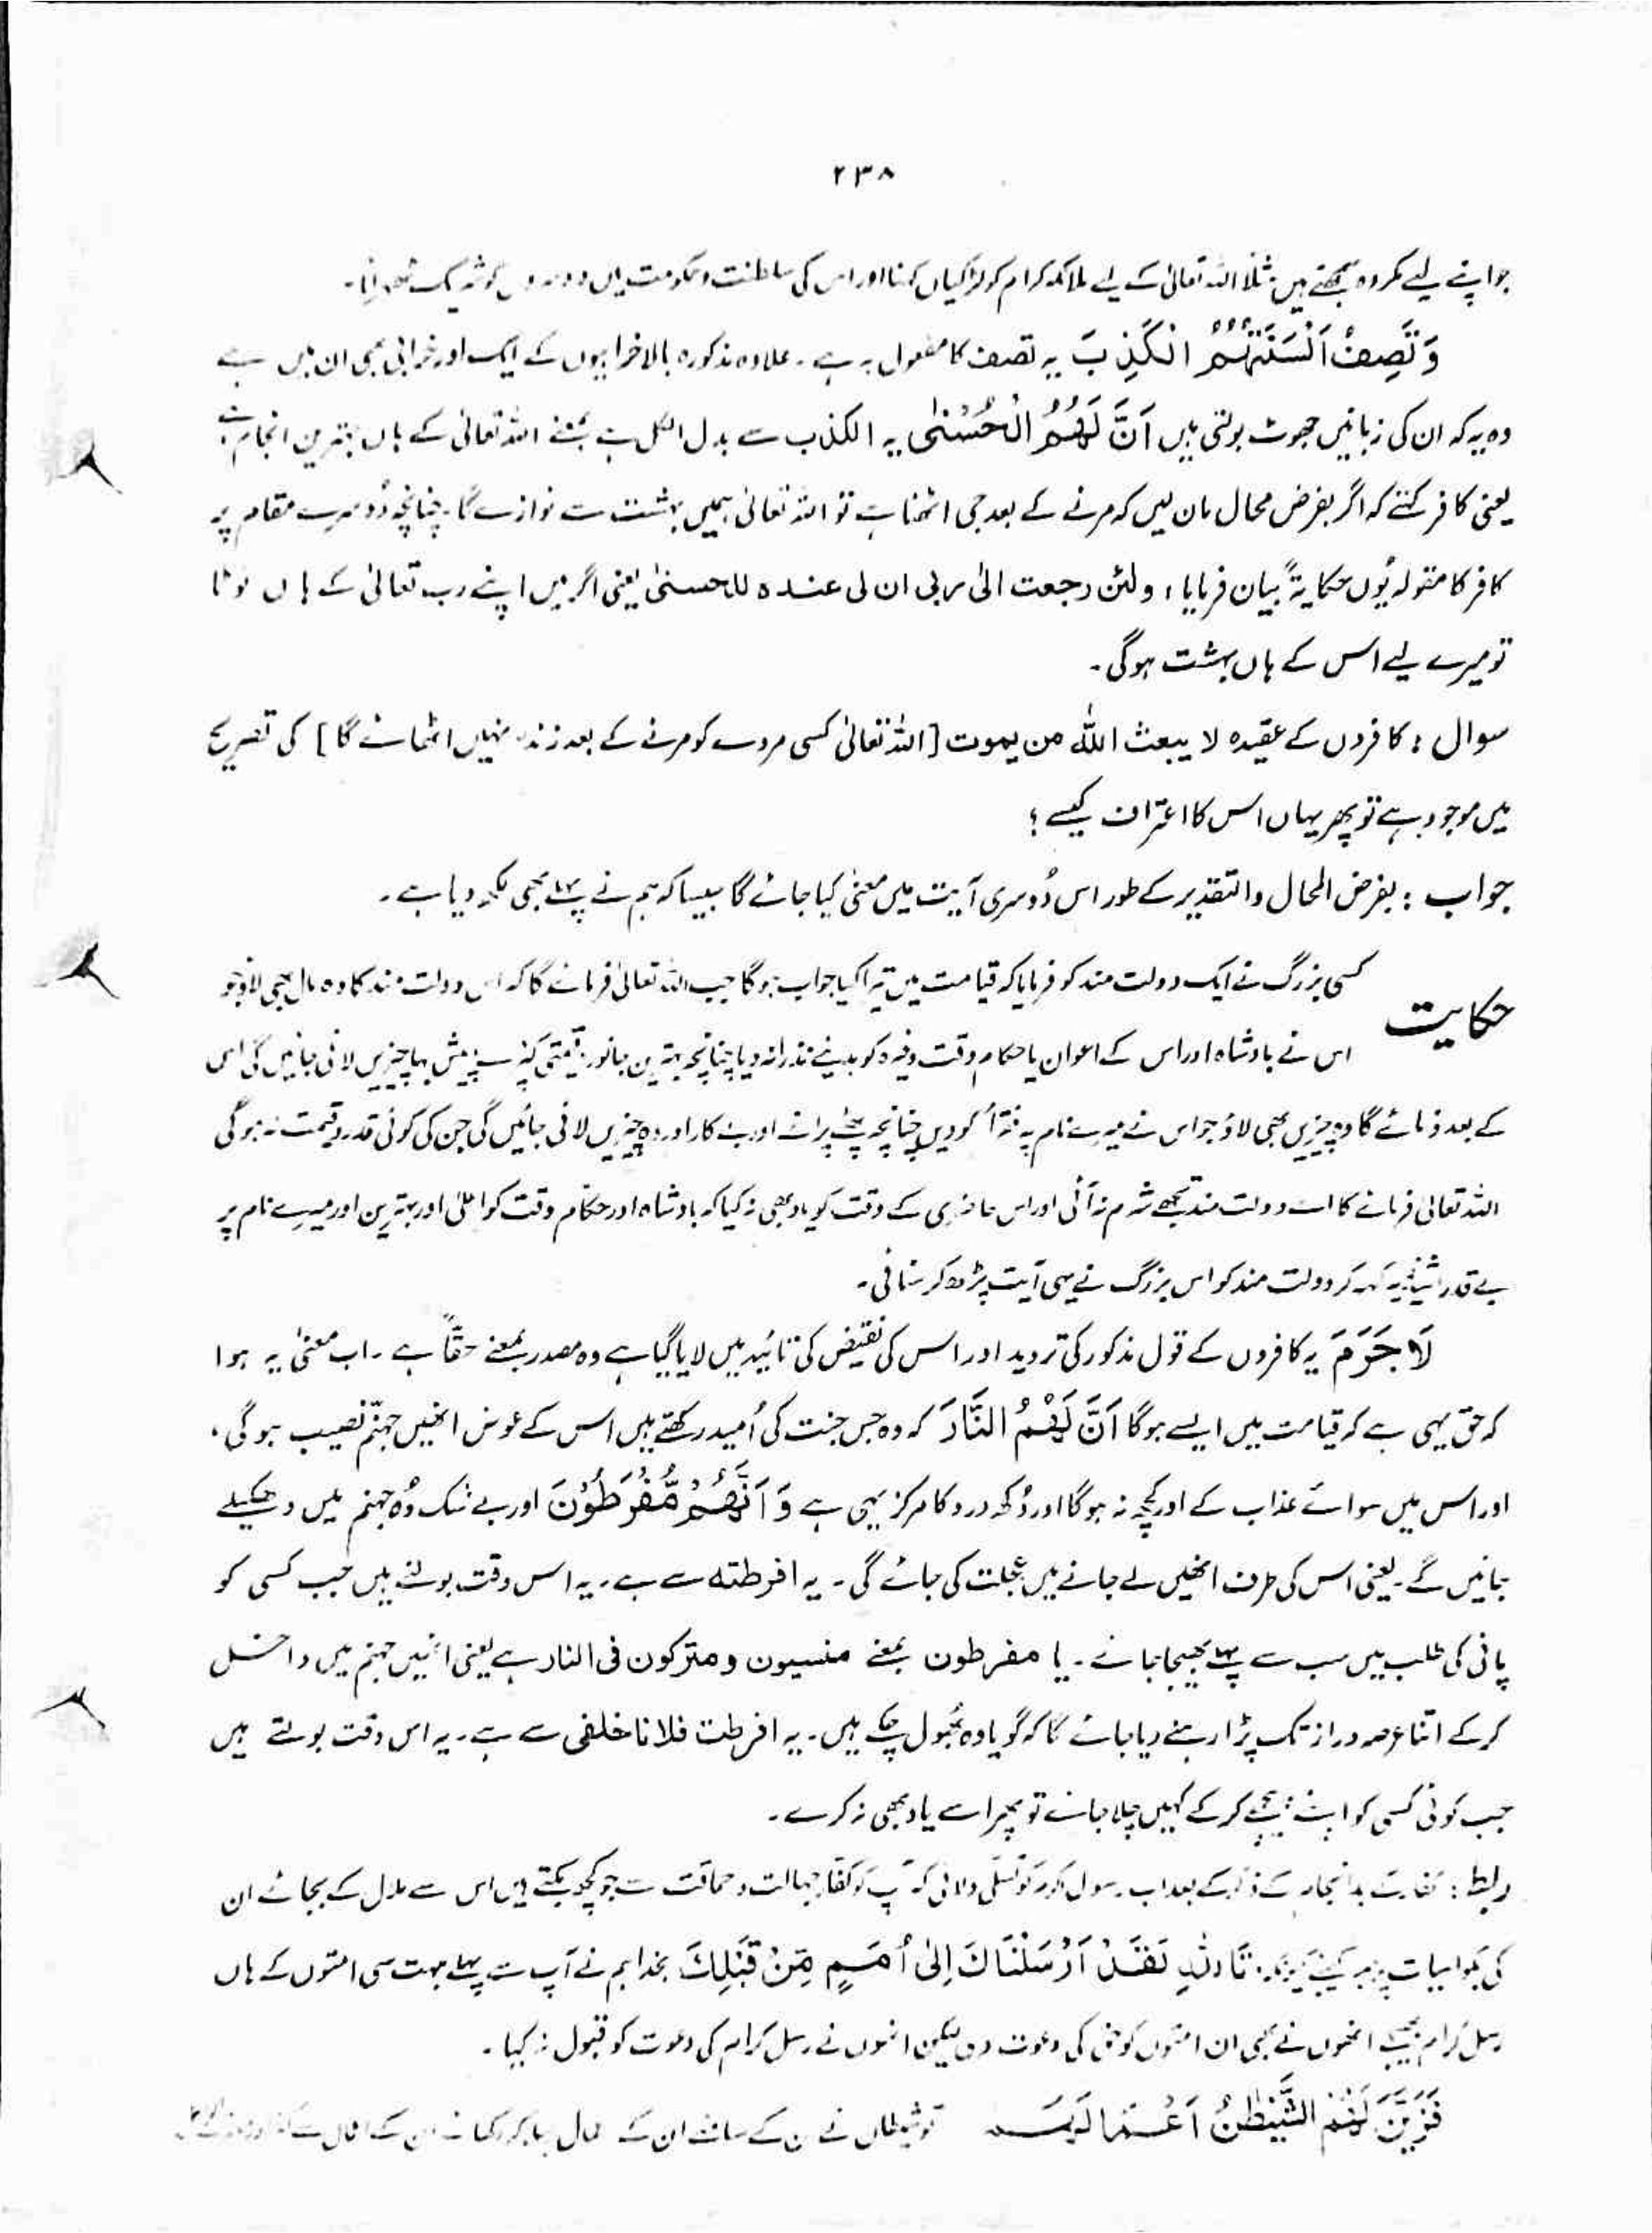 ۲۳۸
جو اپنے لیے مکروہ سمجھتے ہیں مثلاً اللہ تعالیٰ کے لیے ملائکہ کرام کو لڑکیاں کہنا اور اس کی سلطنت و حکومت میں دوسروں کو شریک ٹھہرانا۔
وَ تَصِفُ اَلْسِنَتُهُمُ الْكَذِبَ یہ تصف کا مفعول بہ ہے۔ علاوہ مذکورہ بالا خرابیوں کے ایک اور خرابی بھی ان میں ہے
وہ یہ کہ ان کی زبانیں جھوٹ بولتی ہیں اَنَّ لَهُمُ الْحُسْنٰى یہ الکذب سے بدل الکل ہے بمعنے اللہ تعالیٰ کے ہاں بہترین انجام ہے
یعنی کافر کہتے کہ اگر بفرض محال مان لیں کہ مرنے کے بعد جی اٹھنا ہے تو اللہ تعالیٰ ہمیں بہشت سے نوازے گا۔ چنانچہ دُوسرے مقام پر
کافر کا مقولہ یُوں حکایۃً بیان فرمایا: ولئن رجعت الیٰ ربی ان لی عندہ للحسنیٰ یعنی اگر میں اپنے رب تعالیٰ کے ہاں لوٹا
تو میرے لیے اس کے ہاں بہشت ہوگی۔
سوال: کافروں کے عقیدہ لا یبعث اللہ من یموت [اللہ تعالیٰ کسی مردے کو مرنے کے بعد زندہ نہیں اٹھائے گا] کی تصریح
میں موجود ہے تو پھر یہاں اس کا اعتراف کیسے؟
جواب: بفرض المحال والتقدیر کے طور اس دُوسری آیت میں معنیٰ کیا جائے گا جیسا کہ ہم نے پہلے بھی لکھ دیا ہے۔
حکایت کسی بزرگ نے ایک دولت مند کو فرمایا کہ قیامت میں تیرا کیا جواب ہوگا جب اللہ تعالیٰ فرمائے گا کہ اس دولت مند کا وہ مال بھی لاؤ جو
اس نے بادشاہ اور اس کے اعوان یا حکام وقت وغیرہ کو ہدیے نذرانہ دیا چنانچہ بہترین جانور قیمتی کپڑے بیش بہا چیزیں لائی جائیں گی اس
کے بعد فرمائے گا وہ چیزیں بھی لاؤ جو اس نے میرے نام پہ فقراُ کو دیں چنانچہ پھٹے پرانے اور بے کار اور وہ چیزیں لائی جائیں گی جن کی کوئی قدر و قیمت نہ ہوگی
اللہ تعالیٰ فرمائے گا اے دولت مند تجھے شرم نہ آئی اور اس حاضری کے وقت کو یاد بھی نہ کیا کہ بادشاہ اور حکام وقت کو اعلیٰ اور بہترین اور میرے نام پر
بے قدر اشیاء یہ کہہ کر دولت مند کو اس بزرگ نے یہی آیت پڑھ کر سنائی۔
لَا جَرَمَ یہ کافروں کے قول مذکور کی تردید اور اس کی نقیض کی تائید میں لایا گیا ہے وہ مصدر بمعنے حقّاً ہے۔ اب معنیٰ یہ ہوا
کہ حق یہی ہے کہ قیامت میں ایسے ہوگا اَنَّ لَهُمُ النَّارَ کہ وہ جس جنت کی اُمید رکھتے ہیں اس کے عوض انھیں جہنّم نصیب ہوگی،
اور اس میں سوائے عذاب کے اور کچھ نہ ہوگا اور دُکھ درد کا مرکز یہی ہے وَ اَنَّهُمْ مُّفْرَطُوْنَ اور بے شک وُہ جہنم میں دھکیلے
جائیں گے۔ یعنی اس کی طرف انھیں لے جانے میں عجلت کی جائے گی۔ یہ افرطته سے ہے۔ یہ اس وقت بولتے ہیں جب کسی کو
پانی کی طلب میں سب سے پہلے بھیجا جائے۔ یا مفرطون بمعنے منسیون و متروکون فی النار ہے یعنی انہیں جہنم میں داخل
کرکے اتنا عرصہ دراز تک پڑا رہنے دیا جائے گا کہ گویا وہ بھُول چکے ہیں۔ یہ افرطت فلانا خلفی سے ہے۔ یہ اس وقت بولتے ہیں
جب کوئی کسی کو اپنے پیچھے کرکے کہیں چلا جائے تو پھر اسے یاد بھی نہ کرے۔
ربط: کفار کے بد انجام کے ذکر کے بعد اب رسول اکرم کو تسلی دلائی کہ آپ کو کفار جہالت و حماقت سے جو کچھ بکتے ہیں اس سے ملال کے بجائے ان
کی بکواسات پر صبر کیجئے کیونکہ: تَاللّٰهِ لَقَدْ اَرْسَلْنَاكَ اِلٰى اُمَمٍ مِّنْ قَبْلِكَ بخدا ہم نے آپ سے پہلے بہت سی امتوں کے ہاں
رسل کرام بھیجے انھوں نے بھی ان امتوں کو حق کی دعوت دی لیکن انہوں نے رسل کرام کی دعوت کو قبول نہ کیا۔
فَزَيَّنَ لَهُمُ الشَّيْطٰنُ اَعْمَالَهُمْ تو شیطان نے ان کے سامنے ان کے اعمال سجا کر دکھائے ان کے